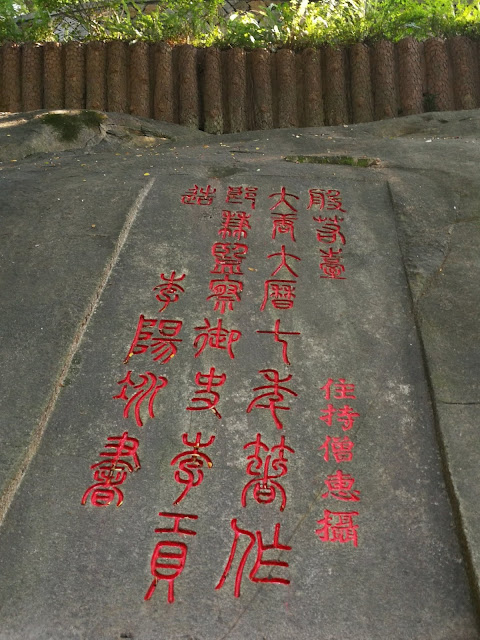 般若臺
住持僧惠攝
大唐大曆七年著作
郎兼監察御史李貢
造
李陽冰書